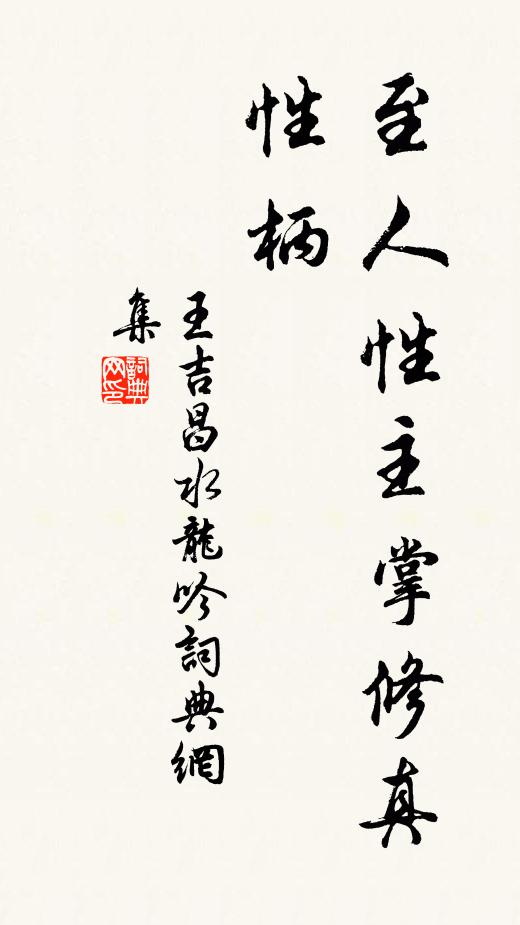 至人性主掌修真
性柄
王吉昌水龍吟詞典網
集
詞典
网印